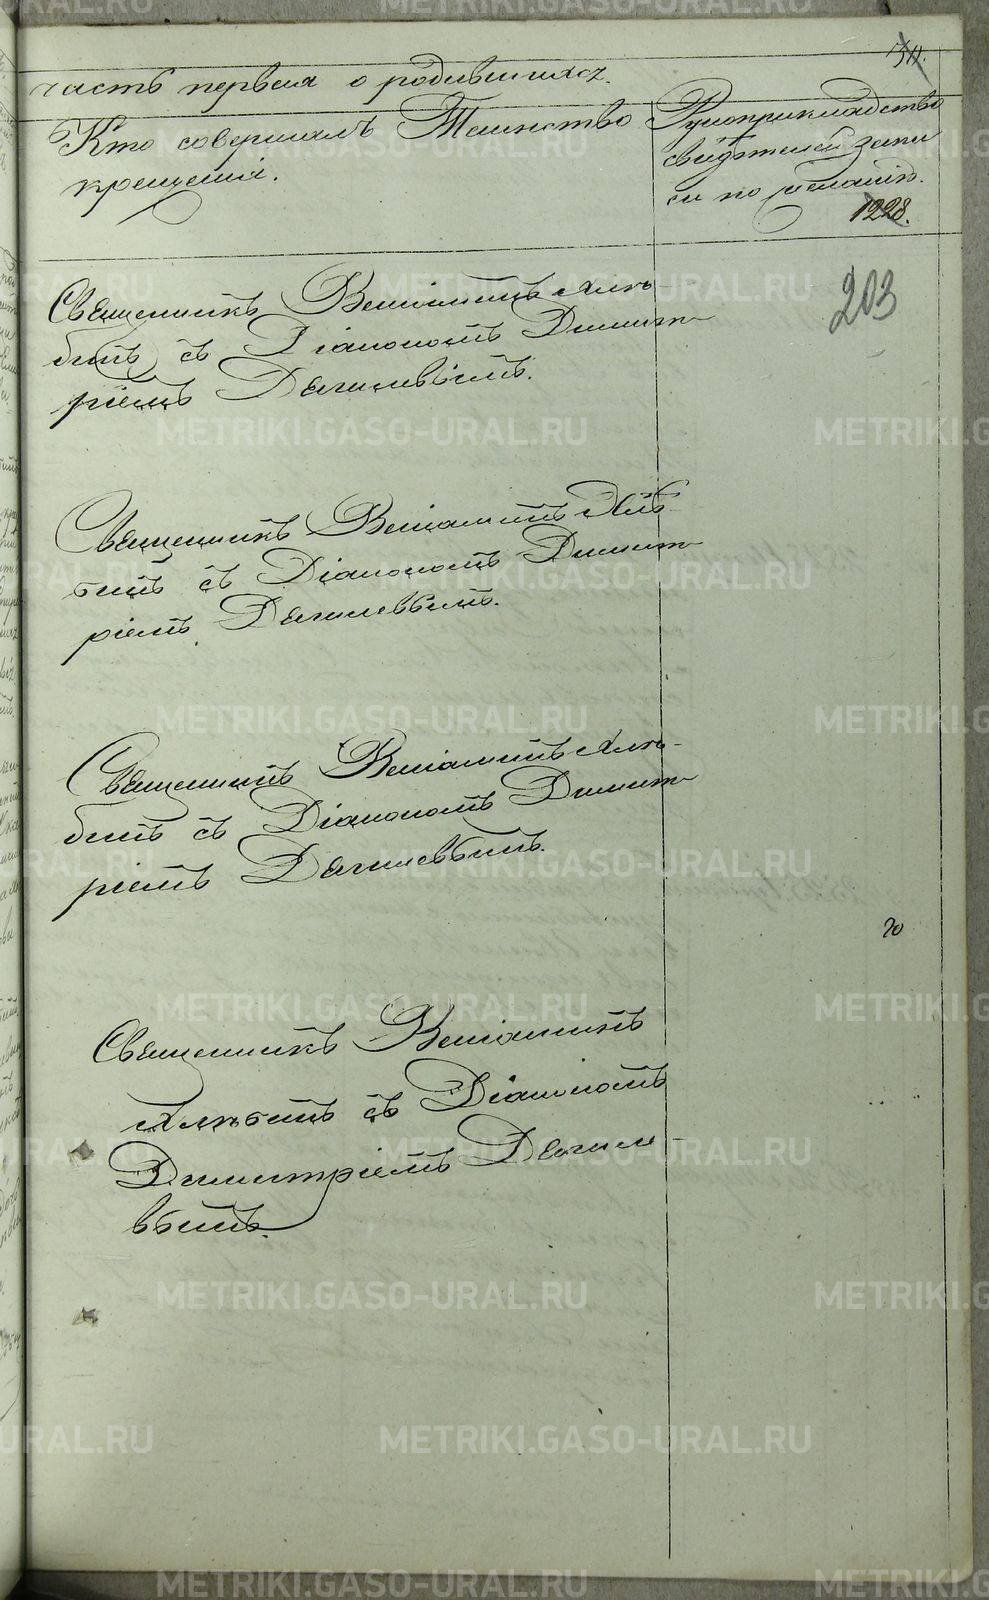 часть первая о родившихся.
Кто совершалъ Таинство
крещенія.
Рукоприкладство
свидѣтелей запи
си по желанію.
1228.
203
Священникъ Веніаминъ Алѣ-
бинъ съ Діакономъ Димит-
ріемъ Дягилевымъ.
Священникъ Веніаминъ Алѣ-
бинъ съ Діакономъ Димит-
ріемъ Дягилевымъ.
Священникъ Веніаминъ Алѣ-
бинъ съ Діакономъ Димит-
ріемъ Дягилевымъ.
Священникъ Веніаминъ
Алѣбинъ съ Діакономъ
Димитріемъ Дягиле-
вымъ.
METRIKI.GASO-URAL.RU